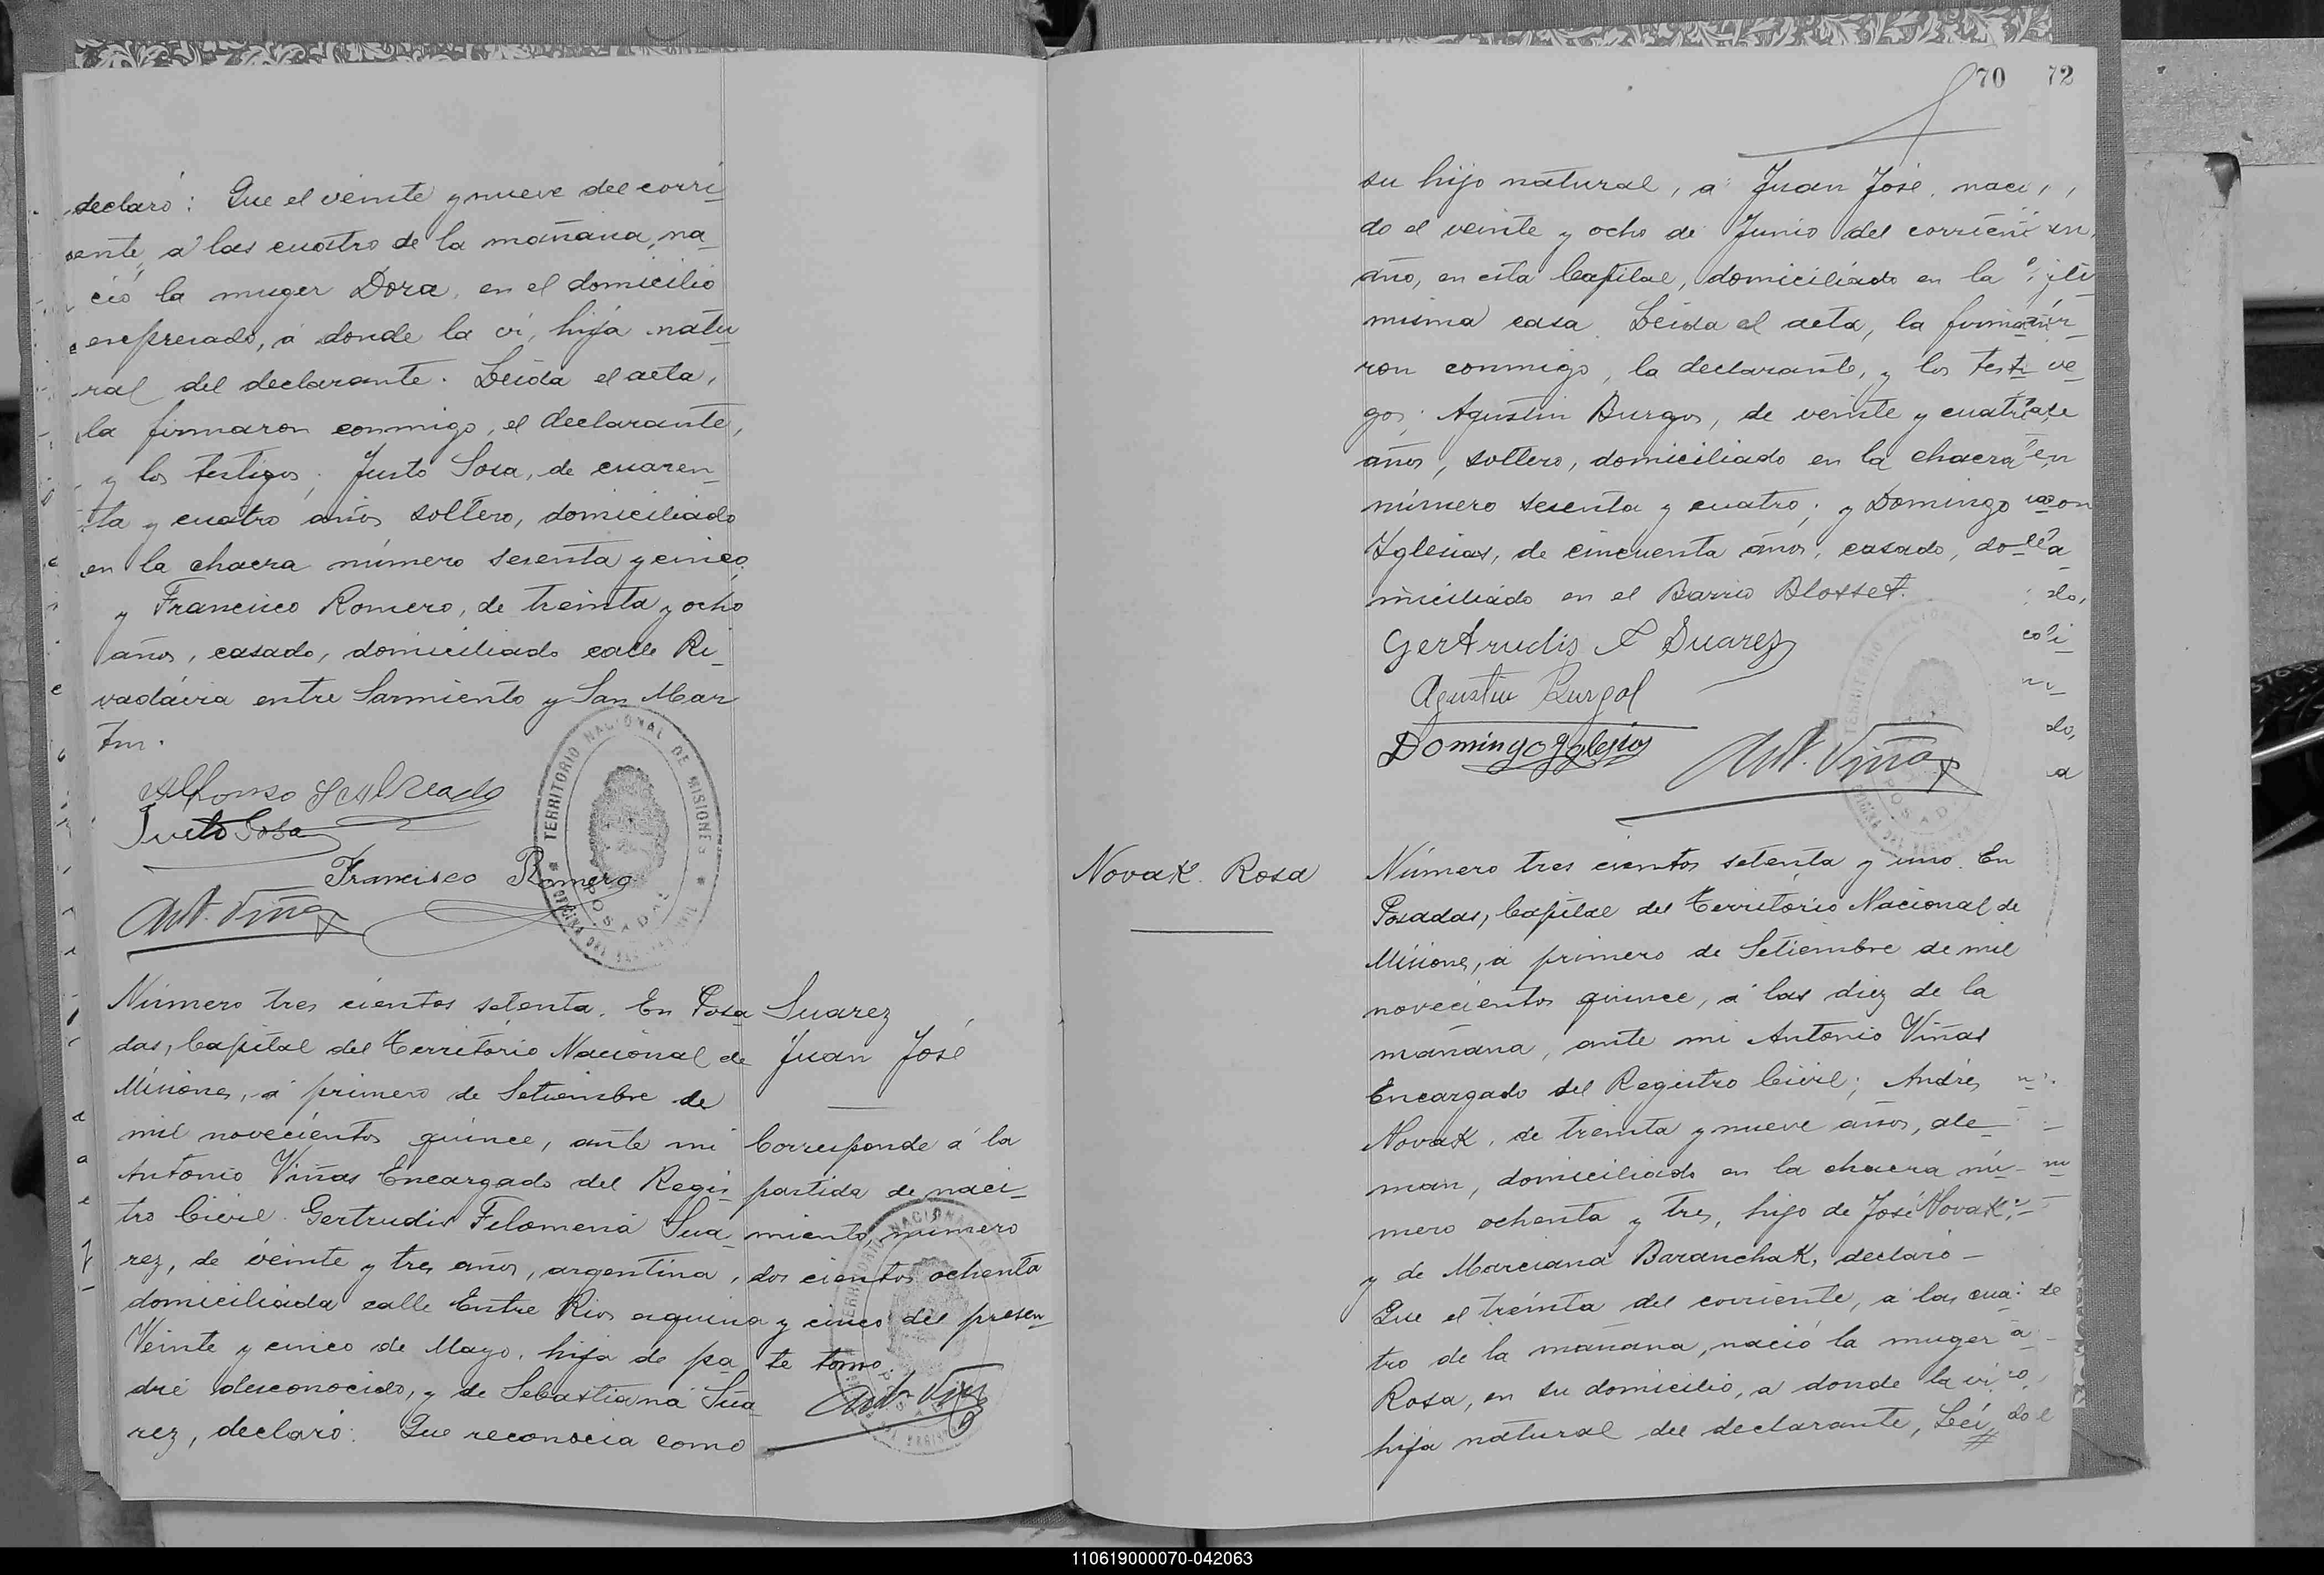 declaró: Que el veinte y nueve del corri
ente, a las cuatro de la mañana, na
ció la muger Dora, en el domicilio
expresado, á donde la ví, hija natu
ral del declarante. Leida el acta,
la firmaron conmigo, el declarante,
y los testigos; Justo Sosa, de cuaren
ta y cuatro años, soltero, domiciliado
en la chacra número sesenta y cinco;
y Francisco Romero, de treinta y ocho
años, casado, domiciliado calle Ri
vadavia entre Sarmiento y San Mar
tin.
Alfonso
Justo Sosa
Francisco Romero
Ant. Viñas
TERRITORIO NACIONAL DE MISIONES
POSADAS
Número tres cientos setenta. En Posa
das, Capital del Territorio Nacional de
Misiones, á primero de Setiembre de
mil novecientos quince, ante mi
Antonio Viñas Encargado del Regis
tro Civil. Gertrudis Filomena Sua
rez, de veinte y tres años, argentina,
domiciliada calle Entre Rios esquina
Veinte y cinco de Mayo, hija de pa
dre desconocido, y de Sebastiana Sua
rez, declaró: Que reconocia como
Suarez
Juan José
Corresponde á la
partida de naci
miento, número
dos cientos ochenta
y cinco del presen
te tomo.
Ant. Viñas
70 72
su hijo natural, a: Juan José, naci
do el veinte y ocho de Junio del corriente
año, en esta Capital, domiciliado en la
misma casa. Leida el acta, la firma
ron conmigo, la declarante, y los testi
gos; Agustin Burgos, de veinte y cuatro
años, soltero, domiciliado en la chacra
número sesenta y cuatro; y Domingo
Yglesias, de cincuenta años, casado, do
miciliado en el Barrio Blosset.
Gertrudis F Suarez
Agustin Burgos
Domingo Yglesias
Ant. Viñas
Novak Rosa
Número tres cientos setenta y uno. En
Posadas, Capital del Territorio Nacional de
Misiones, á primero de Setiembre de mil
novecientos quince, á las diez de la
mañana, ante mi Antonio Viñas
Encargado del Registro Civil; Andrés
Novak, de treinta y nueve años, ale
man, domiciliado en la chacra nú
mero ochenta y tres, hijo de José Novak,
y de Marciana Baranchak, declaró
Que el treinta del corriente, á las cua
tro de la mañana, nació la muger
Rosa, en su domicilio, a donde la ví
hija natural del declarante, Leí
110619000070-042063